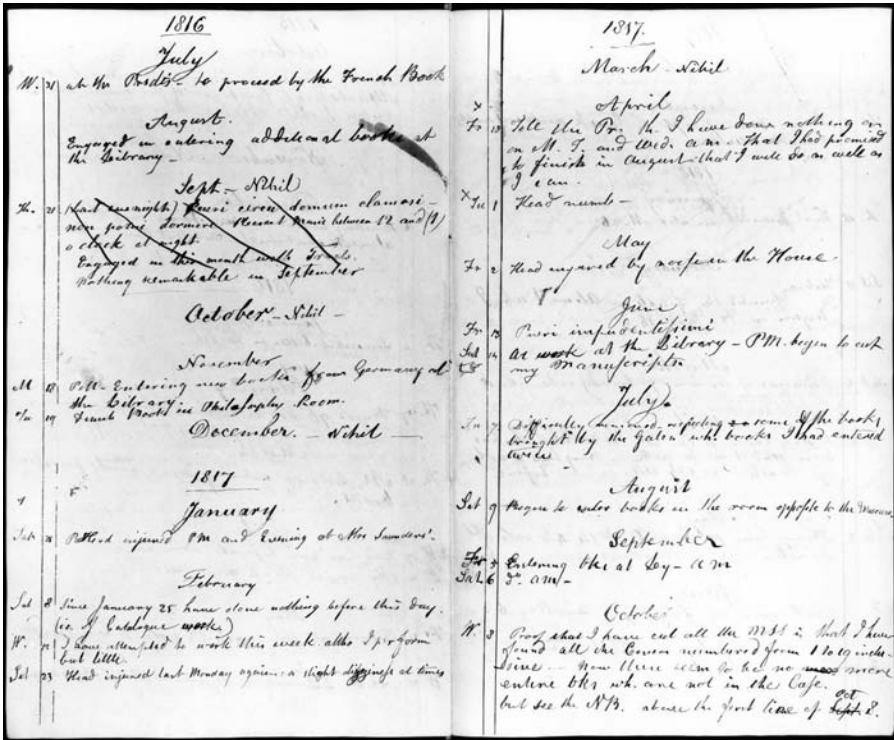 1816
July
W. 31 at the Prdt's to proceed by the French Book
August.
Engaged in entering additional books at
the Library –
Sept. – Nihil
Th. 21 (last night) Pueri circa domum clamosi –
non potui dormire between 12 and (1)
o clock at night.
Engaged in this month with
Nothing remarkable in September
October – Nihil –
November
M 18 P.M. Entering new books from Germany at
the Library.
Tu 19 Books in Philosophy Room.
December. – Nihil –
1817
January
Sat Head injured PM and Evening at Mrs Saunders'.
February
Sat 8 Since January 25 have done nothing before this day.
(i.e. of Catalogue work)
W. 12 I have attempted to work this week altho I perform
but little.
Sat 23 Head injured last Monday again: a slight dizziness at times
1817.
March – Nihil
April
Fr Tell the Pr. th. I have done nothing on
on M. T. and Wed. a.m. That I had promised
to finish in August – that I will do as well as
I can.
Tu 1 Head numb –
May
Fr 2 Head injured by noise in the House
June
Fr 13 Pueri impudentissimi
Sat 14 At work at the Library – P.M. began to cut
my Manuscripts
July
7. Difficulty respecting some of the books
brought by the wh. books I had entered
twice
August
Sat 9 Begin to enter books in the room opposite to the Museum
September
Fr 5 Entering bks at Ly – a m
Sat. 6 Do. am –
October
W. 8 Proof that I have cut all the MSS is that I have
found all the numbered from 1 to 19 inclu-
sive – now there seem to be no more
entire bks wh. are not in the Case.
but see the NB. above the first line of Sept Oct 8.